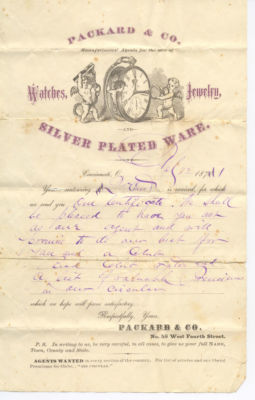 PACKARD & CO.
Manufacturers' Agents for the sale of
Watches, Jewelry,
AND
SILVER PLATED WARE.
Cincinnati, 1871
Your is received, for which
we send you One Certificate. We shall
be pleased to have you act
as our agent and will
to do our best for
you and a Club.
in our Circular
which we hope will prove satisfactory.
Respectfully Yours,
PACKARD & CO.
No. 56 West Fourth Street.
P. S. In writing to us, be very careful, in all cases, to give us your full NAME,
Town, County and State.
AGENTS WANTED in every section of the country. For list of articles and our Grand
Premiums for Clubs, "SEE CIRCULAR."